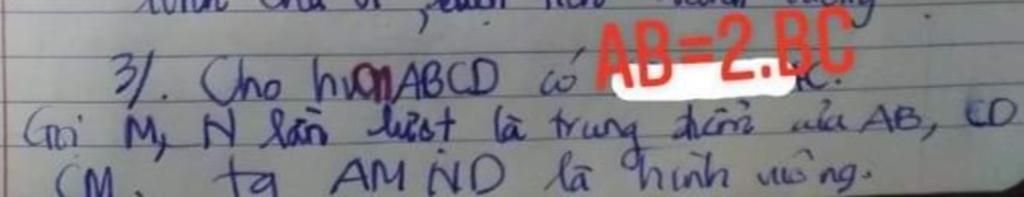 3/. Cho hvcn ABCD có AB=2.BC
Gọi M, N lần lượt là trung điểm của AB, CD
CM. tg AMND là hình vuông.